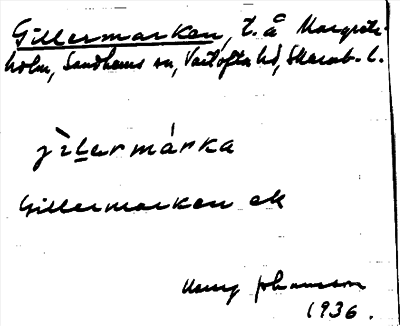 Gillermarken, t. å Margrete-
holm, Sandhems sn, Vartofta hd, Skarab. l.
jìlermárka
Gillermarken ek
Harry Johansson
1936.